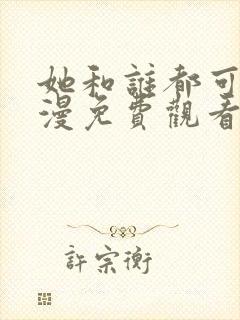 她和誰都可
漫免費觀看
許宗衡